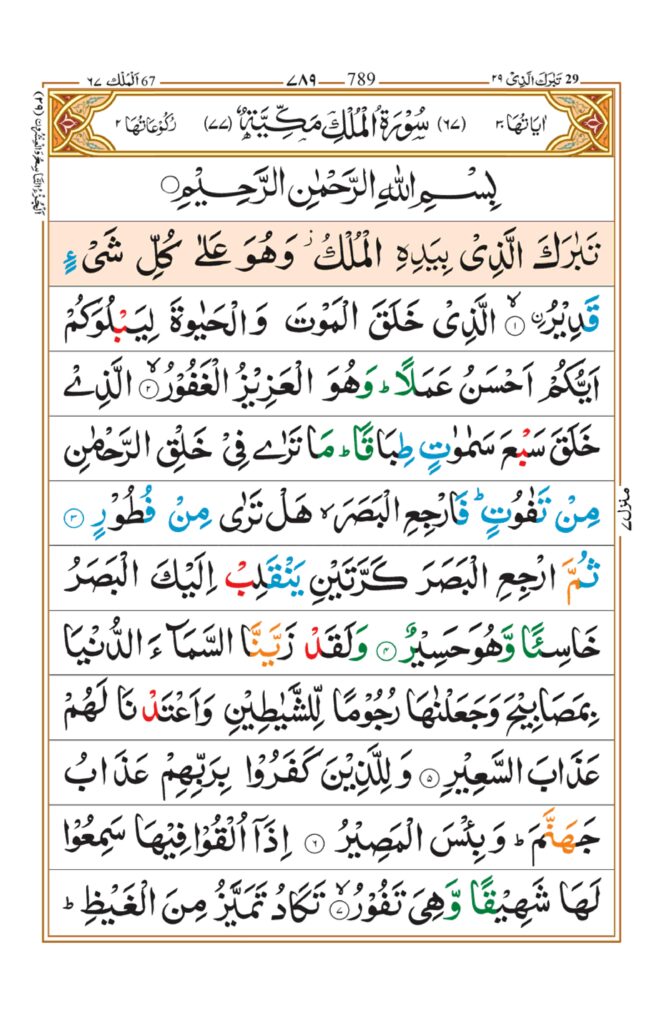 29 تَبٰرَكَ الَّذِىْ ٢٩
789 ٧٨٩
67 اَلْمُلْك ٦٧
اَلْجُزْءُ التَّاسِعُ وَالْعِشْرُوْنَ (٢٩)
اٰيَاتُهَا ٣٠ (٦٧) سُوْرَةُ الْمُلْكِ مَكِّيَّةٌ (٧٧) رُكُوْعَاتُهَا ٢
بِسْمِ اللّٰهِ الرَّحْمٰنِ الرَّحِيْمِ
تَبٰرَكَ الَّذِىْ بِيَدِهِ الْمُلْكُ ز وَهُوَ عَلٰى كُلِّ شَىْءٍ
قَدِيْرُ ۨ ۙ ﴿١﴾ الَّذِىْ خَلَقَ الْمَوْتَ وَالْحَيٰوةَ لِيَبْلُوَكُمْ
اَيُّكُمْ اَحْسَنُ عَمَلًا ؕ وَهُوَ الْعَزِيْزُ الْغَفُوْرُ ۙ ﴿٢﴾ الَّذِىْ
خَلَقَ سَبْعَ سَمٰوٰتٍ طِبَاقًا ؕ مَا تَرٰى فِىْ خَلْقِ الرَّحْمٰنِ
مِنْ تَفٰوُتٍ ؕ فَارْجِعِ الْبَصَرَ ۙ هَلْ تَرٰى مِنْ فُطُوْرٍ ﴿٣﴾
ثُمَّ ارْجِعِ الْبَصَرَ كَرَّتَيْنِ يَنْقَلِبْ اِلَيْكَ الْبَصَرُ
خَاسِئًا وَّهُوَ حَسِيْرٌ ﴿٤﴾ وَلَقَدْ زَيَّنَّا السَّمَآءَ الدُّنْيَا
بِمَصَابِيْحَ وَجَعَلْنٰهَا رُجُوْمًا لِّلشَّيٰطِيْنِ وَاَعْتَدْنَا لَهُمْ
عَذَابَ السَّعِيْرِ ﴿٥﴾ وَلِلَّذِيْنَ كَفَرُوْا بِرَبِّهِمْ عَذَابُ
جَهَنَّمَ ؕ وَبِئْسَ الْمَصِيْرُ ﴿٦﴾ اِذَآ اُلْقُوْا فِيْهَا سَمِعُوْا
لَهَا شَهِيْقًا وَّهِىَ تَفُوْرُ ۙ ﴿٧﴾ تَكَادُ تَمَيَّزُ مِنَ الْغَيْظِ ؕ
منزل ٧